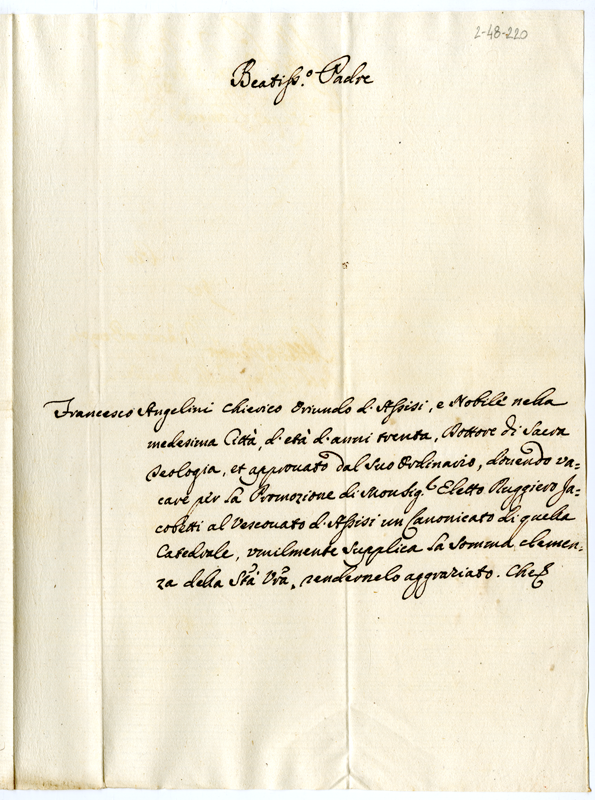 2-48-220
Beatiss.º Padre
Francesco Angelini Chierico Oriundo d'Assisi, e Nobile nella
medesima Città, d'età d'anni trenta, Dottore di Sacra
Teologia, et approvato dal suo Ordinario, douendo va-
care per la Promozione di Monsig.r Eletto Ruggiero Ja-
cobetti al Vescouato d'Assisi un Canonicato di quella
Catedrale, vmilmente supplica la somma clemen-
za della Stà Vrã, rendernelo aggraziato. Che